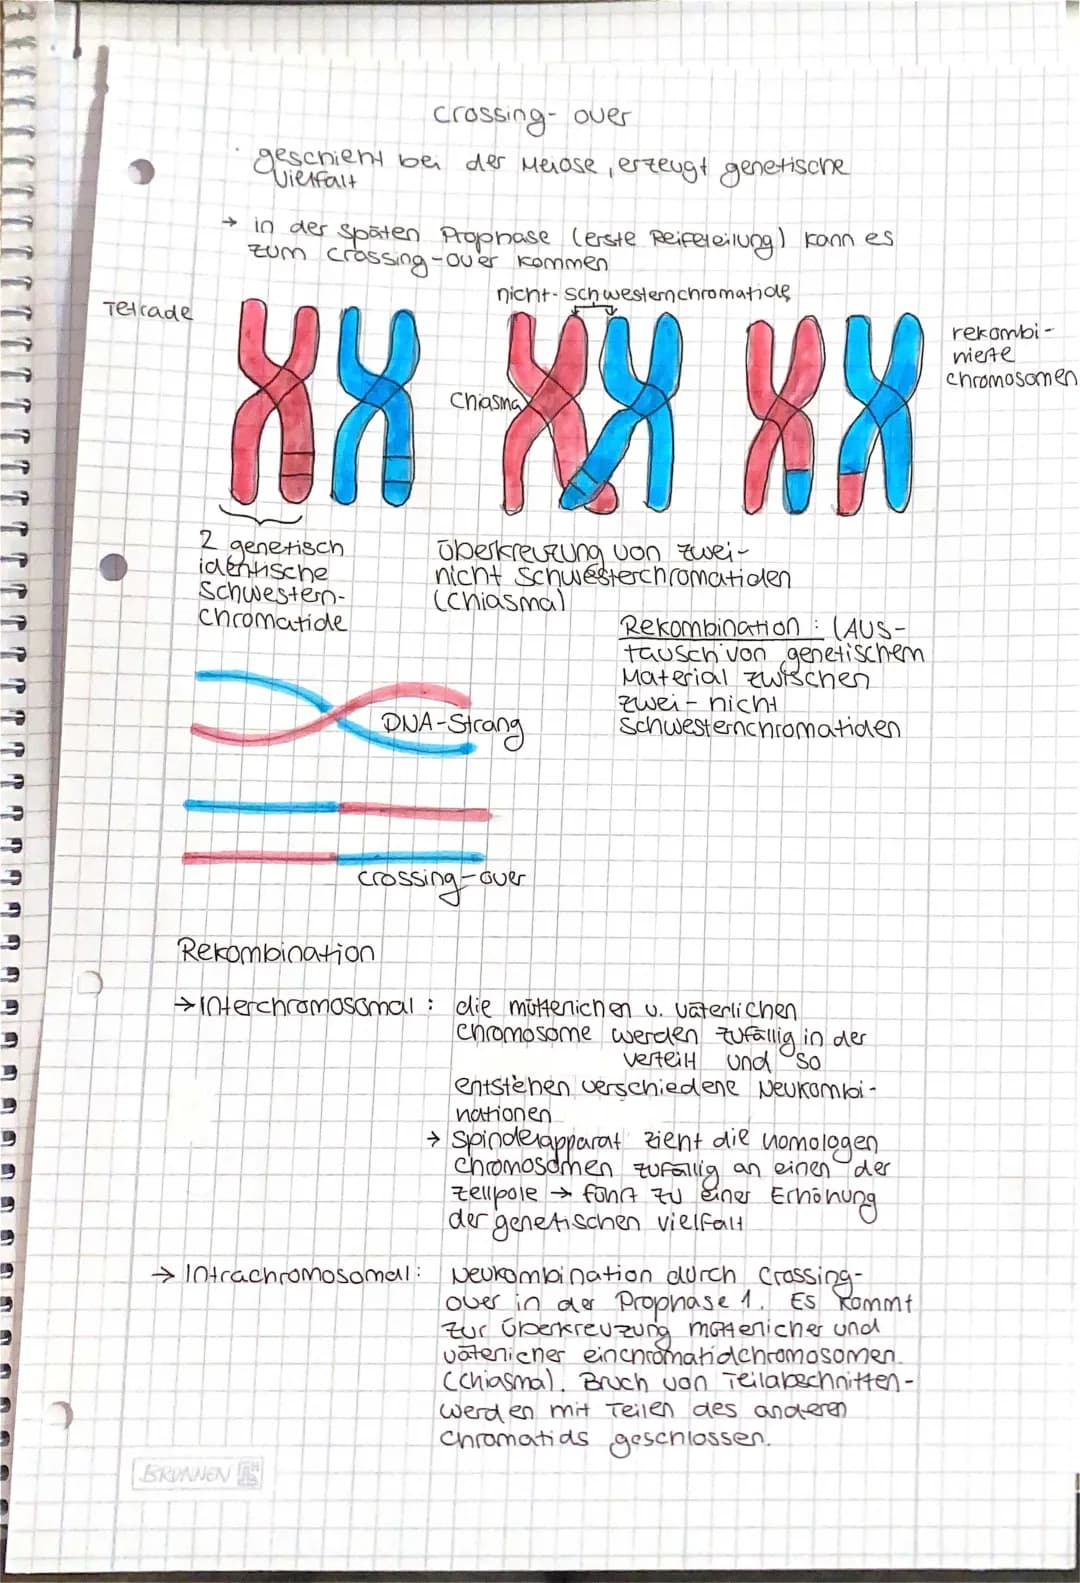 crossing-over
· geschieht bei der Meiose, erzeugt genetische
Vielfalt
→ in der späten Prophase (erste Reifeteilung) kann es
zum crossing-over kommen
nicht-schwesternchromatide
Tetrade
rekombi-
nierte
chromosomen
Chiasma
2 genetisch
identische
Schwestern-
Chromatide
Überkreuzung von zwei-
nicht Schwesterchromatiden
(Chiasma)
Rekombination: (Aus-
tausch von genetischem
Material zwischen
zwei-nicht
Schwesternchromatiden
DNA-Strang
crossing-over
Rekombination
→ Interchromosomal: die mütterlichen u. väterlichen
Chromosome werden zufällig in der
verteilt und so
entstehen verschiedene Neukombi-
nationen
→ Spindelapparat zieht die homologen
Chromosomen zufällig an einen der
Zellpole → führt zu einer Erhöhung
der genetischen Vielfalt
→ Intrachromosomal: Neukombination durch Crossing-
over in der Prophase 1. Es kommt
zur Überkreuzung mütterlicher und
väterlicher einchromatidchromosomen.
(Chiasma). Bruch von Teilabschnitten-
werden mit Teilen des anderen
Chromatids geschlossen.
BRUNNEN